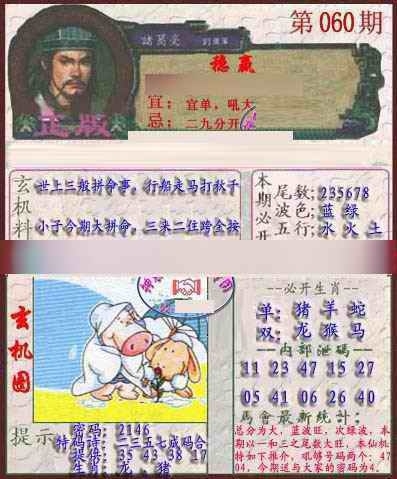 第060期
諸葛亮
稳赢
宜：宜单，吼大
忌：二九分开
正版
玄机料
世上三般拼命事，行船走马打秋千
小子今期大拼命，三来二往跨全按
本期必开
尾数：235678
波色：蓝 绿
五行：水 火 土
玄机图
--必开生肖--
单：猪 羊 蛇
双：龙 猴 马
--内部泄码--
11 23 47 15 27
05 41 06 26 40
馬會最新统计：
总分为大，蓝波旺，次绿波，本
期以一和三之尾数大旺，本仙机
特如下推介，吼够号码两个：47
04，今期送与大家的密码为4。
提示
密码：2146
特码诗：二三五七成码合
提供：35 43 38 17
生肖：龙、猪